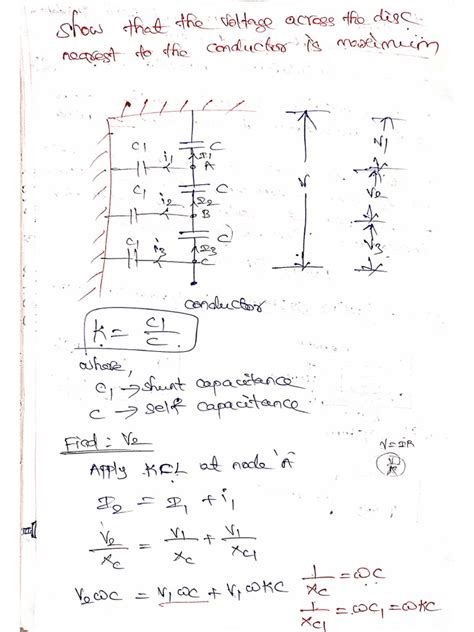 Show that the voltage across the disc
nearest to the conductor is maximum
C1 i1 C I1 A
C1 i2 C I2 B
C1 i3 C I3 C
V
V1
V2
V3
conductor
K = C1/C
where,
C1 → shunt capacitance
C → self capacitance
Find : V2
Apply KCL at node 'A'
I2 = I1 + i1
V2/XC = V1/XC + V1/XC1
V2ωC = V1ωC + V1ωKC
V = IR
1/XC = ωC
1/XC1 = ωC1 = ωKC